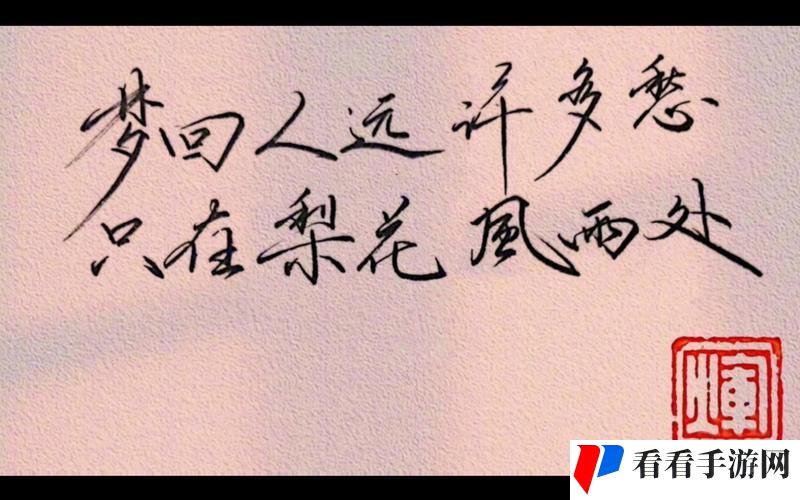 梦回人远许多愁
只在梨花風雨处
輝
看看手游网